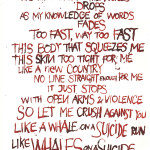 DROPS
AS MY KNOWLEDGE OF WORDS
FADES
TOO FAST, WAY TOO FAST
THIS BODY THAT SQUEEZES ME
THIS SKIN TOO TIGHT FOR ME
LIKE A NEW COUNTRY
NO LINE STRAIGHT ENOUGH FOR ME
IT JUST STOPS
WITH OPEN ARMS & VIOLENCE
SO LET ME CRUSH AGAINST YOU
LIKE A WHALE ON A SUICIDE RUN
LIKE WHALES ON A SUICIDE